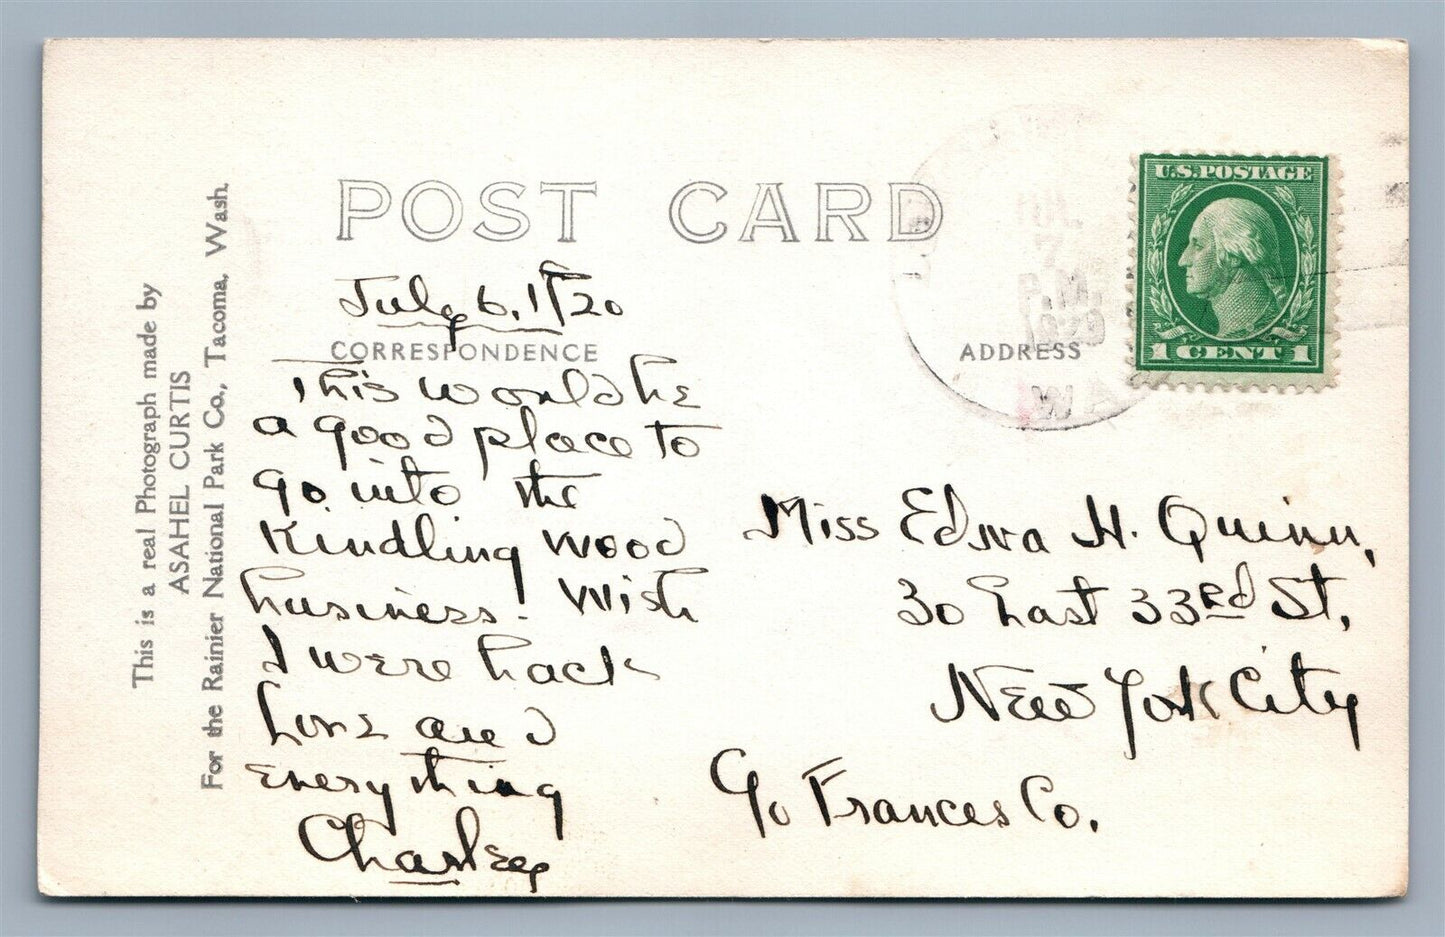 This is a real Photograph made by
ASAHEL CURTIS
For the Rainier National Park Co., Tacoma, Wash.
POST CARD
July 6, 1920
CORRESPONDENCE
This would be
a good place to
go into the
Kindling wood
business. Wish
I were back
Love and
Everything
Charley
7
P.M.
ADDRESS
U.S. POSTAGE
1 CENT 1
Miss Edna H. Quinn,
30 East 33rd St,
New York City
c/o Frances Co.